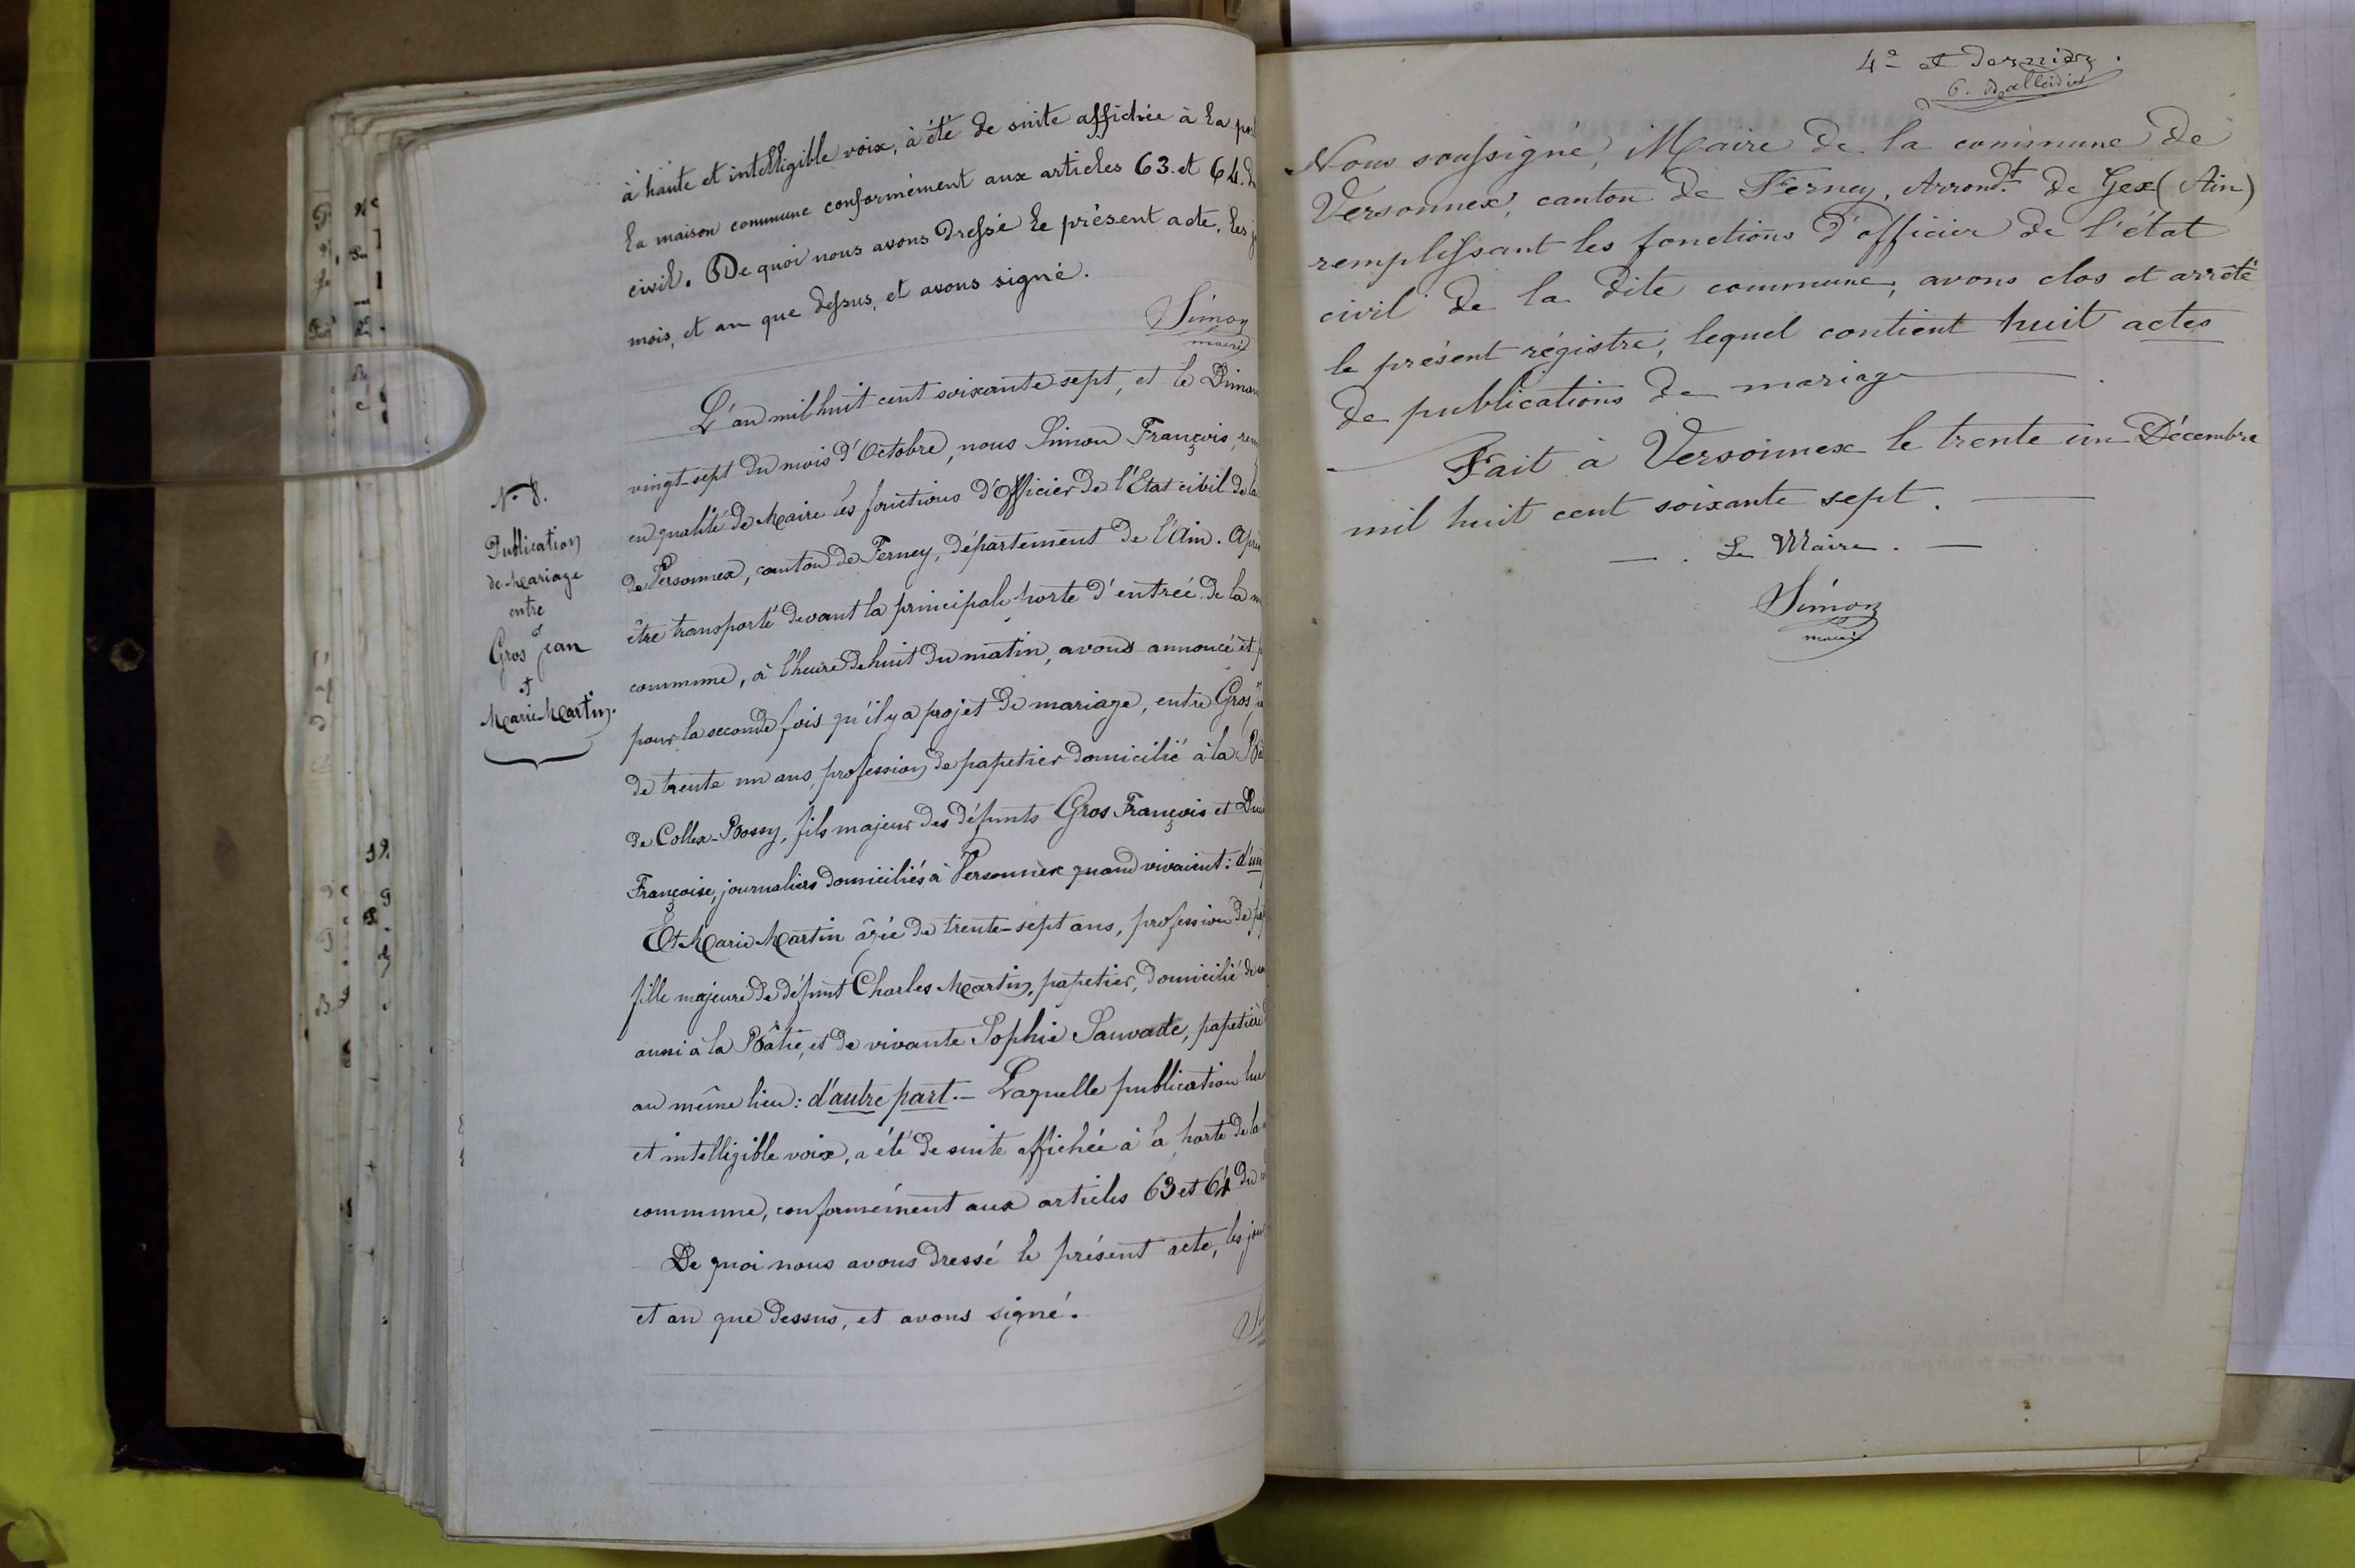 à haute et intelligible voix, à été de suite affichée à la
la maison commune conformément aux articles 63. et 64.
civil. De quoi nous avons dressé le présent acte, les
mois, et an que dessus, et avons signé.
Simon
maire
L'an mil huit cent soixante sept, et le
vingt-sept du mois d'Octobre, nous Simon François,
en qualité de Maire les fonctions d'Officier de l'Etat civil de la
de Versonnex, canton de Ferney, département de l'Ain.
être transporté devant la principale porte d'entrée de la
commune, à l'heure de huit du matin, avons annoncé et
pour la seconde fois qu'il y a projet de mariage, entre Gros
de trente un ans, profession de papetier domicilié à la
de Collex-Bossy, fils majeur des défunts Gros François et
Françoise, journaliers domiciliés à Versonnex quand vivaient:
Et Marie Martin âgée de trente-sept ans, profession de
fille majeure de défunt Charles Martin, papetier, domicilié
aussi à la Bâtie, et de vivante Sophie Sauvade, papetière
au même lieu: d'autre part.- Laquelle publication
et intelligible voix, a été de suite affichée à la porte de la
commune, conformément aux articles 63 et 64 du
De quoi nous avons dressé le présent acte, les
et an que dessus, et avons signé.
N° 8.
Publication
de Mariage
entre
Gros Jean
et
Marie Martin.
4e et dernière.
Nous soussigné, Maire de la commune de
Versonnex, canton de Ferney, Arrondt de Gex (Ain)
remplissant les fonctions d'officier de l'état
civil de la dite commune, avons clos et arrêté
le présent régistre, lequel contient huit actes
de publications de mariage
Fait à Versonnex le trente un Décembre
mil huit cent soixante sept.
Le Maire.
Simon
maire